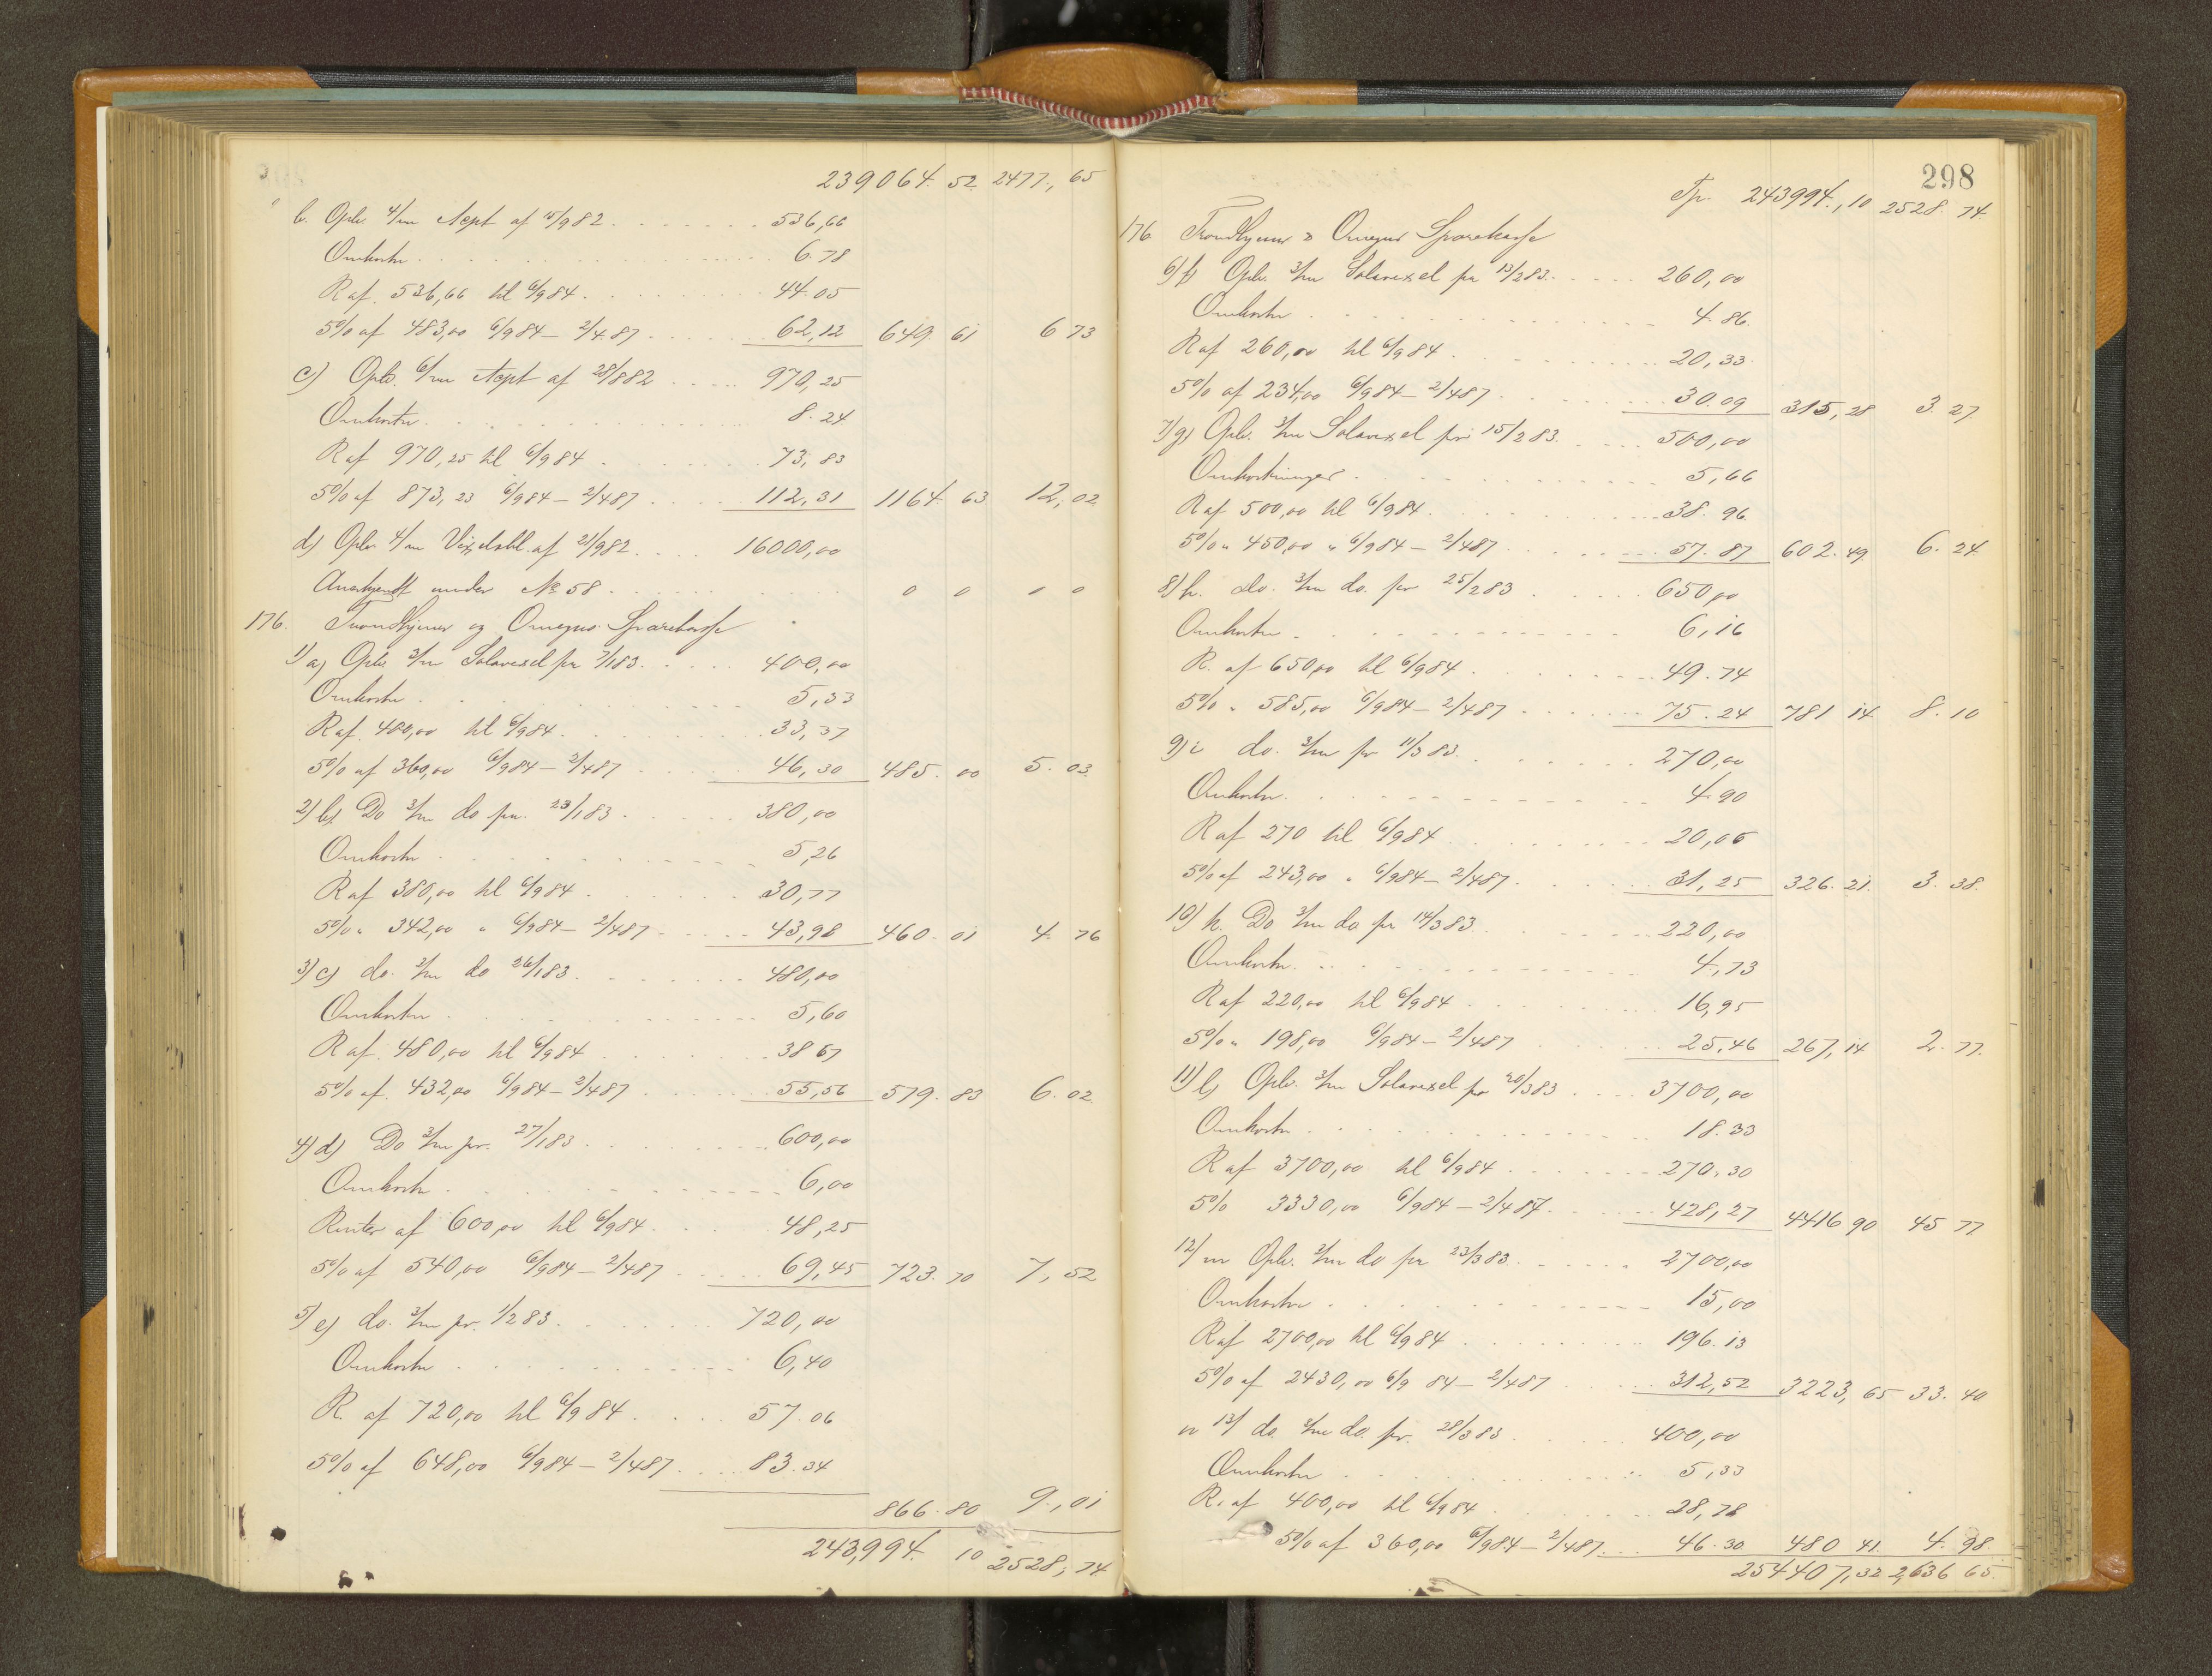 239064. 52 2477, 65
b. Opbr 4/m Acpt af 15/9 82 536,66
Omkostn 6.78
R af. 536,66 til 6/9 84 44.05
5% af 483,00 6/9 84 – 2/4 87 62,12 649. 61 6 73
c) Opbr. 6/m Acpt af 28/8 82 970,25
Omkostn 8.24
R af 970,25 til 6/9 84 73,83
5% af 873,23 6/9 84 – 2/4 87 112,31 1164. 63 12,02
d) Opbr 4/m Vexelobl. af 21/9 82 16000,00
Anerkjendt under No 58 0 0 0 0
176. Trondhjems og Omegns Sparekasse
1) a) Opbr. 3/m Solavexel pr 7/1 83 400,00
Omkostn 5,33
R af. 400,00 til 6/9 84 33,37
5% af 360,00 6/9 84 – 2/4 87 46,30 485. 00 5. 03
2) b) Do 3/m do pr. 23/1 83 380,00
Omkostn 5,26
R af 380,00 til 6/9 84 30,77
5% " 342,00 " 6/9 84 – 2/4 87 43,98 460. 01 4. 76
3) c) do. 3/m do 26/1 83 480,00
Omkostn 5,60
R af. 480,00 til 6/9 84 38 67
5% af. 432,00 6/9 84 – 2/4 87 55,56 579. 83 6. 02
4) d) Do 3/m pr. 27/1 83 600,00
Omkostn 6,00
Renter af 600,00 til 6/9 84 48,25
5% af 540,00 6/9 84 – 2/4 87 69,45 723. 70 7,52
5) e) do. 3/m pr. 1/2 83 720,00
Omkostn 6,40
R. af 720,00 til 6/9 84 57.06
5% af 648,00 6/9 84 – 2/4 87 83.34
866. 80 9,01
243,994. 10 2528,74
298
Tr. 243994.,10 2528. 74
176 Trondhjems & Omegns Sparekasse
6) f) Opbr. 3/m Solavexel pr 13/2 83 260,00
Omkostn 4.86
R af 260,00 til 6/9 84 20,33
5% af 234,00 6/9 84 – 2/4 87 30.09 315,28 3. 27
7) g) Opbr. 3/m Solavexel pr 15/2 83 500,00
Omkostninger 5,66
R af 500,00 til 6/9 84 38.96
5% " 450,00 " 6/9 84 – 2/4 87 57.87 602. 49 6. 24
8) h. do. 3/m do. pr 25/2 83 650,00
Omkostn 6,16
R. af 650,00 til 6/9 84 49.74
5% " 585,00 6/9 84 – 2/4 87 75.24 781 14 8. 10
9) i do. 3/m pr 11/3 83 270,00
Omkostn 4.90
R af 270 til 6/9 84 20,06
5% af 243,00 " 6/9 84 – 2/4 87 31,25 326. 21. 3. 38.
10) k. Do 3/m do pr 14/3 83 220,00
Omkostn 4,73
R af 220,00 til 6/9 84 16,95
5% " 198,00 6/9 84 – 2/4 87 25,46 267,14 2. 77.
11) l) Opbr. 3/m Solavexel pr 20/3 83 3700,00
Omkostn 18.33
R af 3700,00 til 6/9 84 270.30
5% 3330,00 6/9 84 – 2/4 87 428,27 4416 90 45 77
12) m Opbr. 3/m do pr 23/3 83 2700,00
Omkostn 15,00
R af 2700,00 til 6/9 84 196.13
5% af 2430,00 6/9 84 – 2/4 87 312,52 3223,65 33. 40
n 13) do. 3/m do. pr. 28/3 83 400,00
Omkostn 5,33
R. af 400,00 til 6/9 84 28,78
5% af 360,00 6/9 84 – 2/4 87 46.30 480 41. 4. 98.
254407,32 2,636 65.